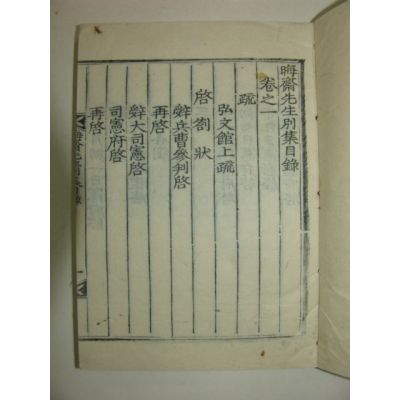 晦齋先生別集目錄
卷之一
疏
弘文館上疏
啓劄狀
辭兵曹參判啓
再啓
辭大司憲啓
司憲府啓
再啓